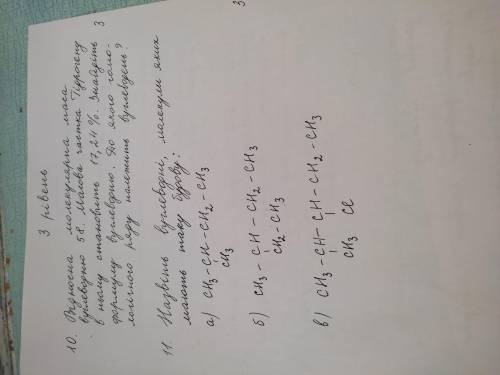 3 рівень
10. Відносна молекулярна маса
вуглеводню 58. Масова частка Гідрогену
в ньому становить 17,24 %. Знайдіть
формулу вуглеводню. До якого гомо-
логічного ряду належить вуглеводень?
3
11. Назвіть вуглеводні, молекули яких
мають таку будову:
а) CH3-CH-CH2-CH3
CH3
б) CH3-CH-CH2-CH3
CH2-CH3
в) CH3-CH-CH-CH2-CH3
CH3 Cl
3